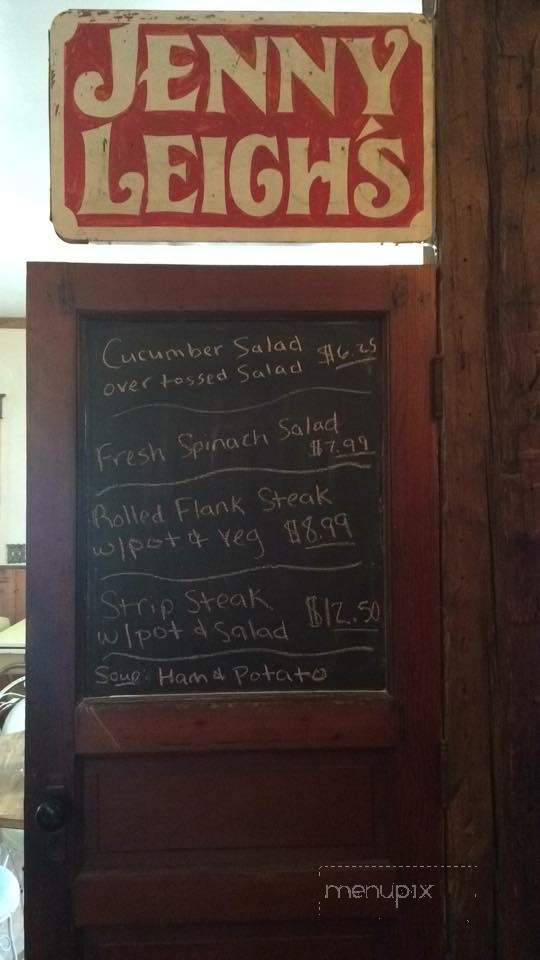 JENNY
LEIGH'S
Cucumber Salad $6.25
over tossed Salad
Fresh Spinach Salad
$7.99
Rolled Flank Steak
w/pot & veg $8.99
Strip Steak $12.50
w/pot & Salad
Soup: Ham & Potato
menupix